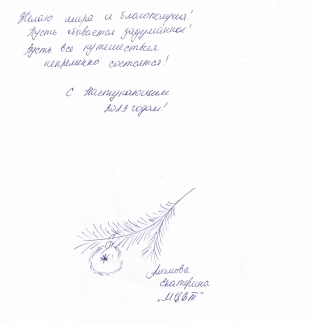 Желаю мира и благополучия!
Пусть сбывается задуманное!
Пусть все путешествия
непременно состоятся!
С Наступающим
2019 годом!
Екатерина
"МЦВТ"